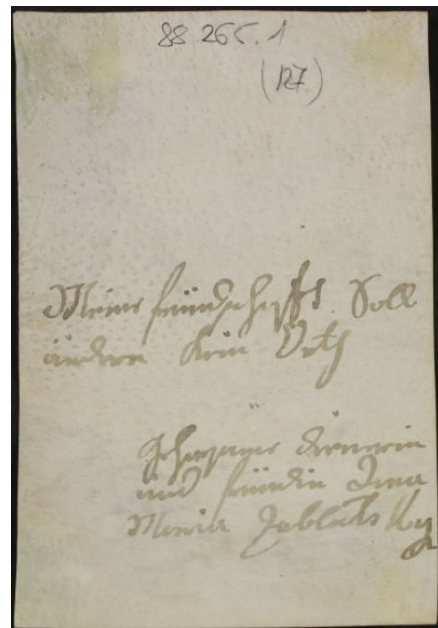 88.265.1
(127)
Meine freündschafft Soll
ändern Kein
gehorsame dienerin
und freündin Anna
Maria Jablutsky